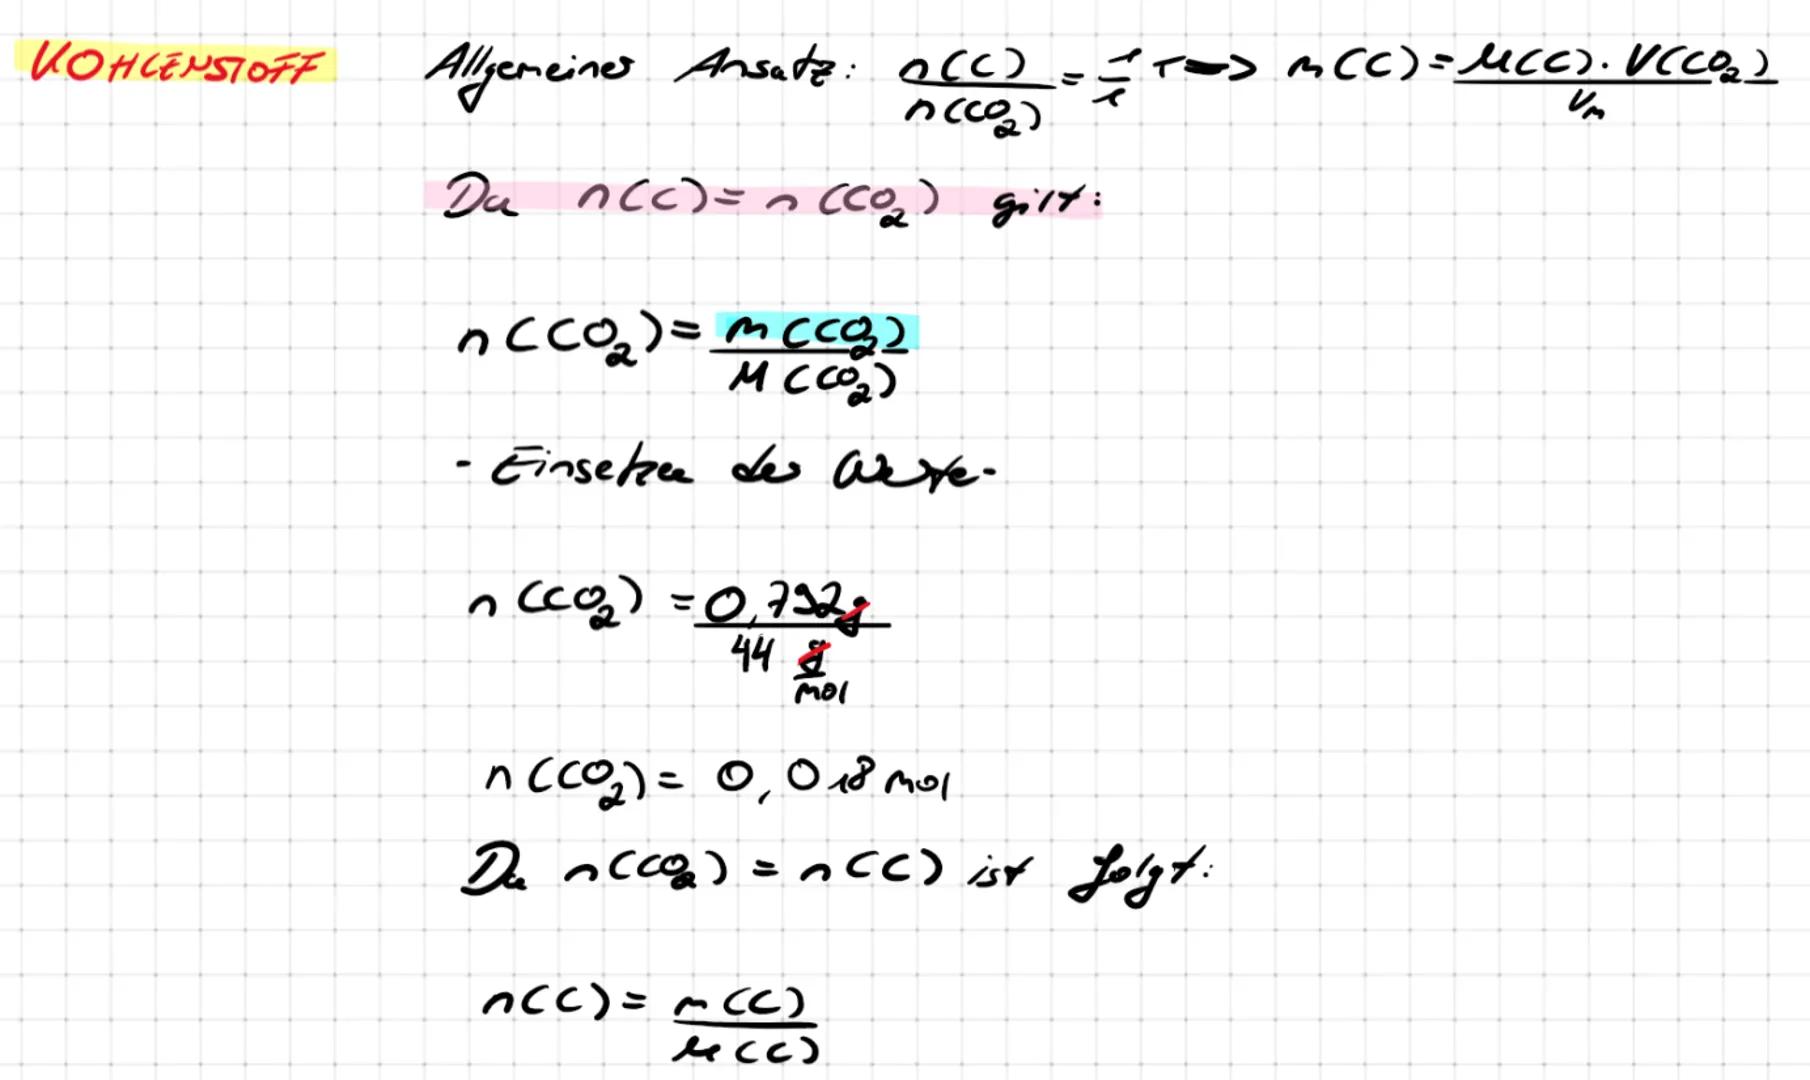 KOHLENSTOFF Allgemeiner Ansatz: n(C)/n(CO₂) = 1/1 => m(C) = M(C) · V(CO₂)/Vₘ
Da n(C) = n(CO₂) gilt:
n(CO₂) = m(CO₂)/M(CO₂)
- Einsetzen der Werte -
n(CO₂) = 0,792g/44 g/mol
n(CO₂) = 0,018 mol
Da n(CO₂) = n(C) ist folgt:
n(C) = m(C)/M(C)